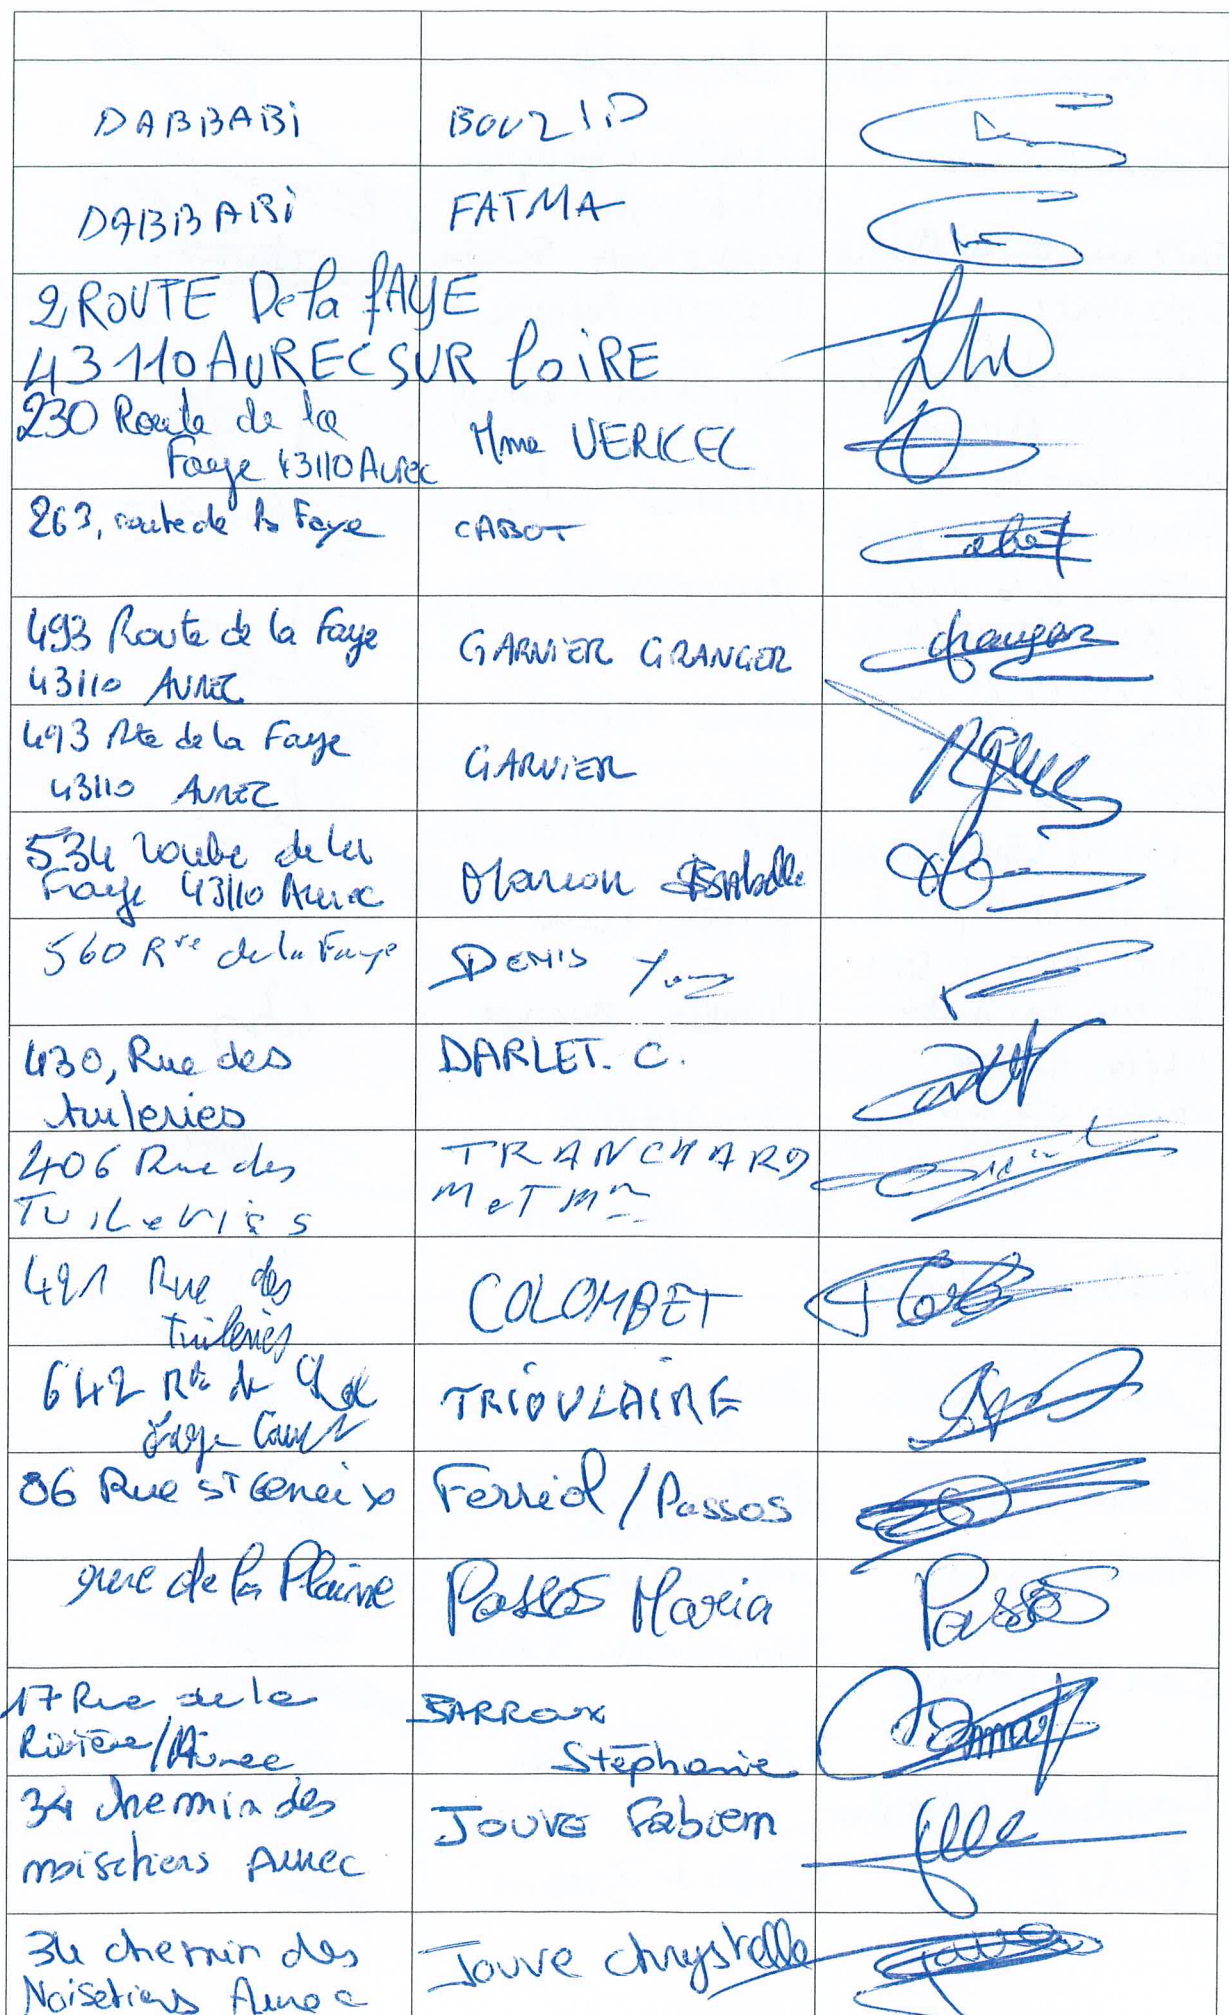 DABBABi BOUZID
DABBABi FATMA
2 ROUTE De la fAYE
43110 AUREC SUR loiRE
230 Route de la
Faye 43110 Aurec Mme VERICEL
263, route de la Faye CABOT
493 Route de la Faye
43110 AUREC GARNIER GRANGER
493 Rte de la Faye
43110 AUREC GARNIER
534 route de la
Faye 43110 Aurec Marion Isabelle
560 Rte de la Faye DENIS
430, Rue des DARLET. C.
tuileries
406 Rue des TRANCHARD
TUILeries M eT Mme
491 Rue des
tuileries COLOMBET
642 Rte de la
Faye TRIOULAIRE
86 Rue ST Geneix Ferriol / Passos
rue de la Plaine Passos Maria Passos
17 Rue de la BARROUX
Rivière/Aurec Stéphanie
34 chemin des JOUVE Fabien
noisetiers Aurec
34 chemin des Jouve chrystelle
Noisetiers Aurec